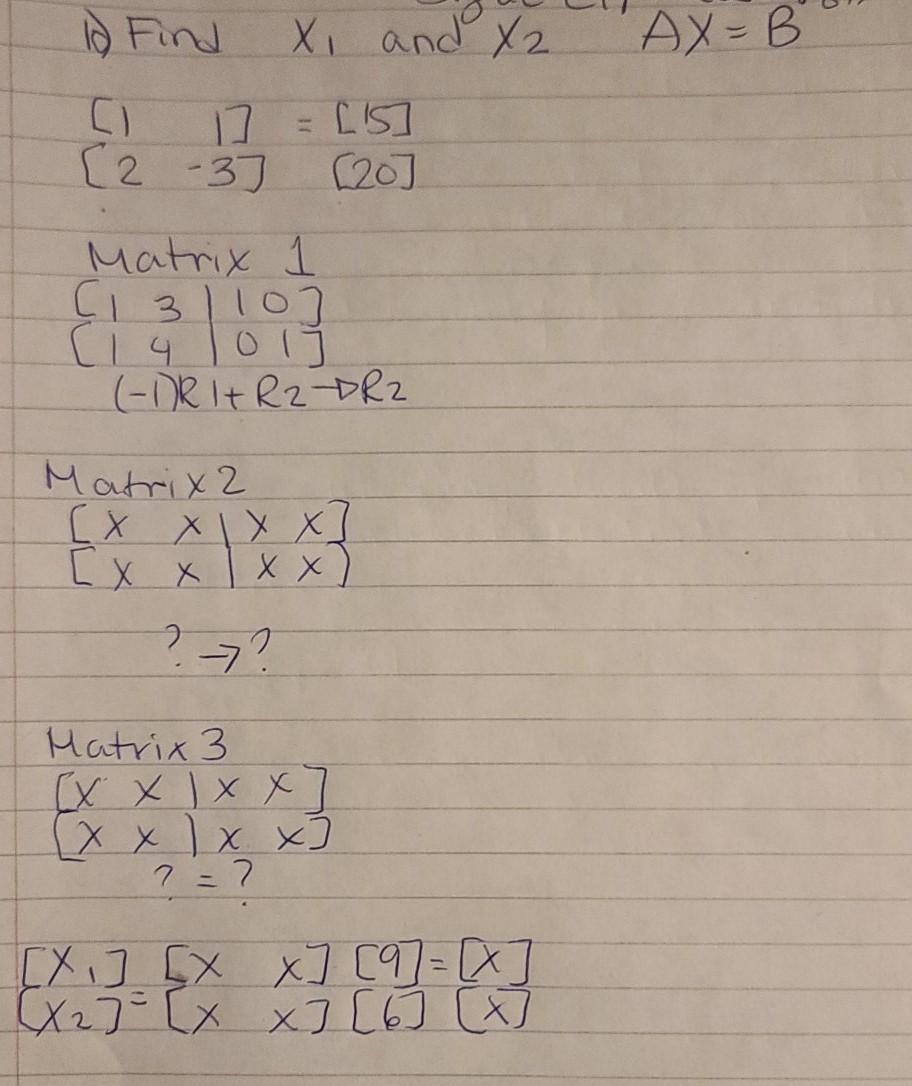 10) Find X1 and X2 AX = B
[1 1] = [15]
[2 -3] [20]
Matrix 1
[1 3 | 1 0]
[1 4 | 0 1]
(-1)R1 + R2 → R2
Matrix 2
[x x | x x]
[x x | x x]
? → ?
Matrix 3
[x x | x x]
[x x | x x]
? = ?
[X1] [x x] [9] = [x]
[X2] = [x x] [6] [x]